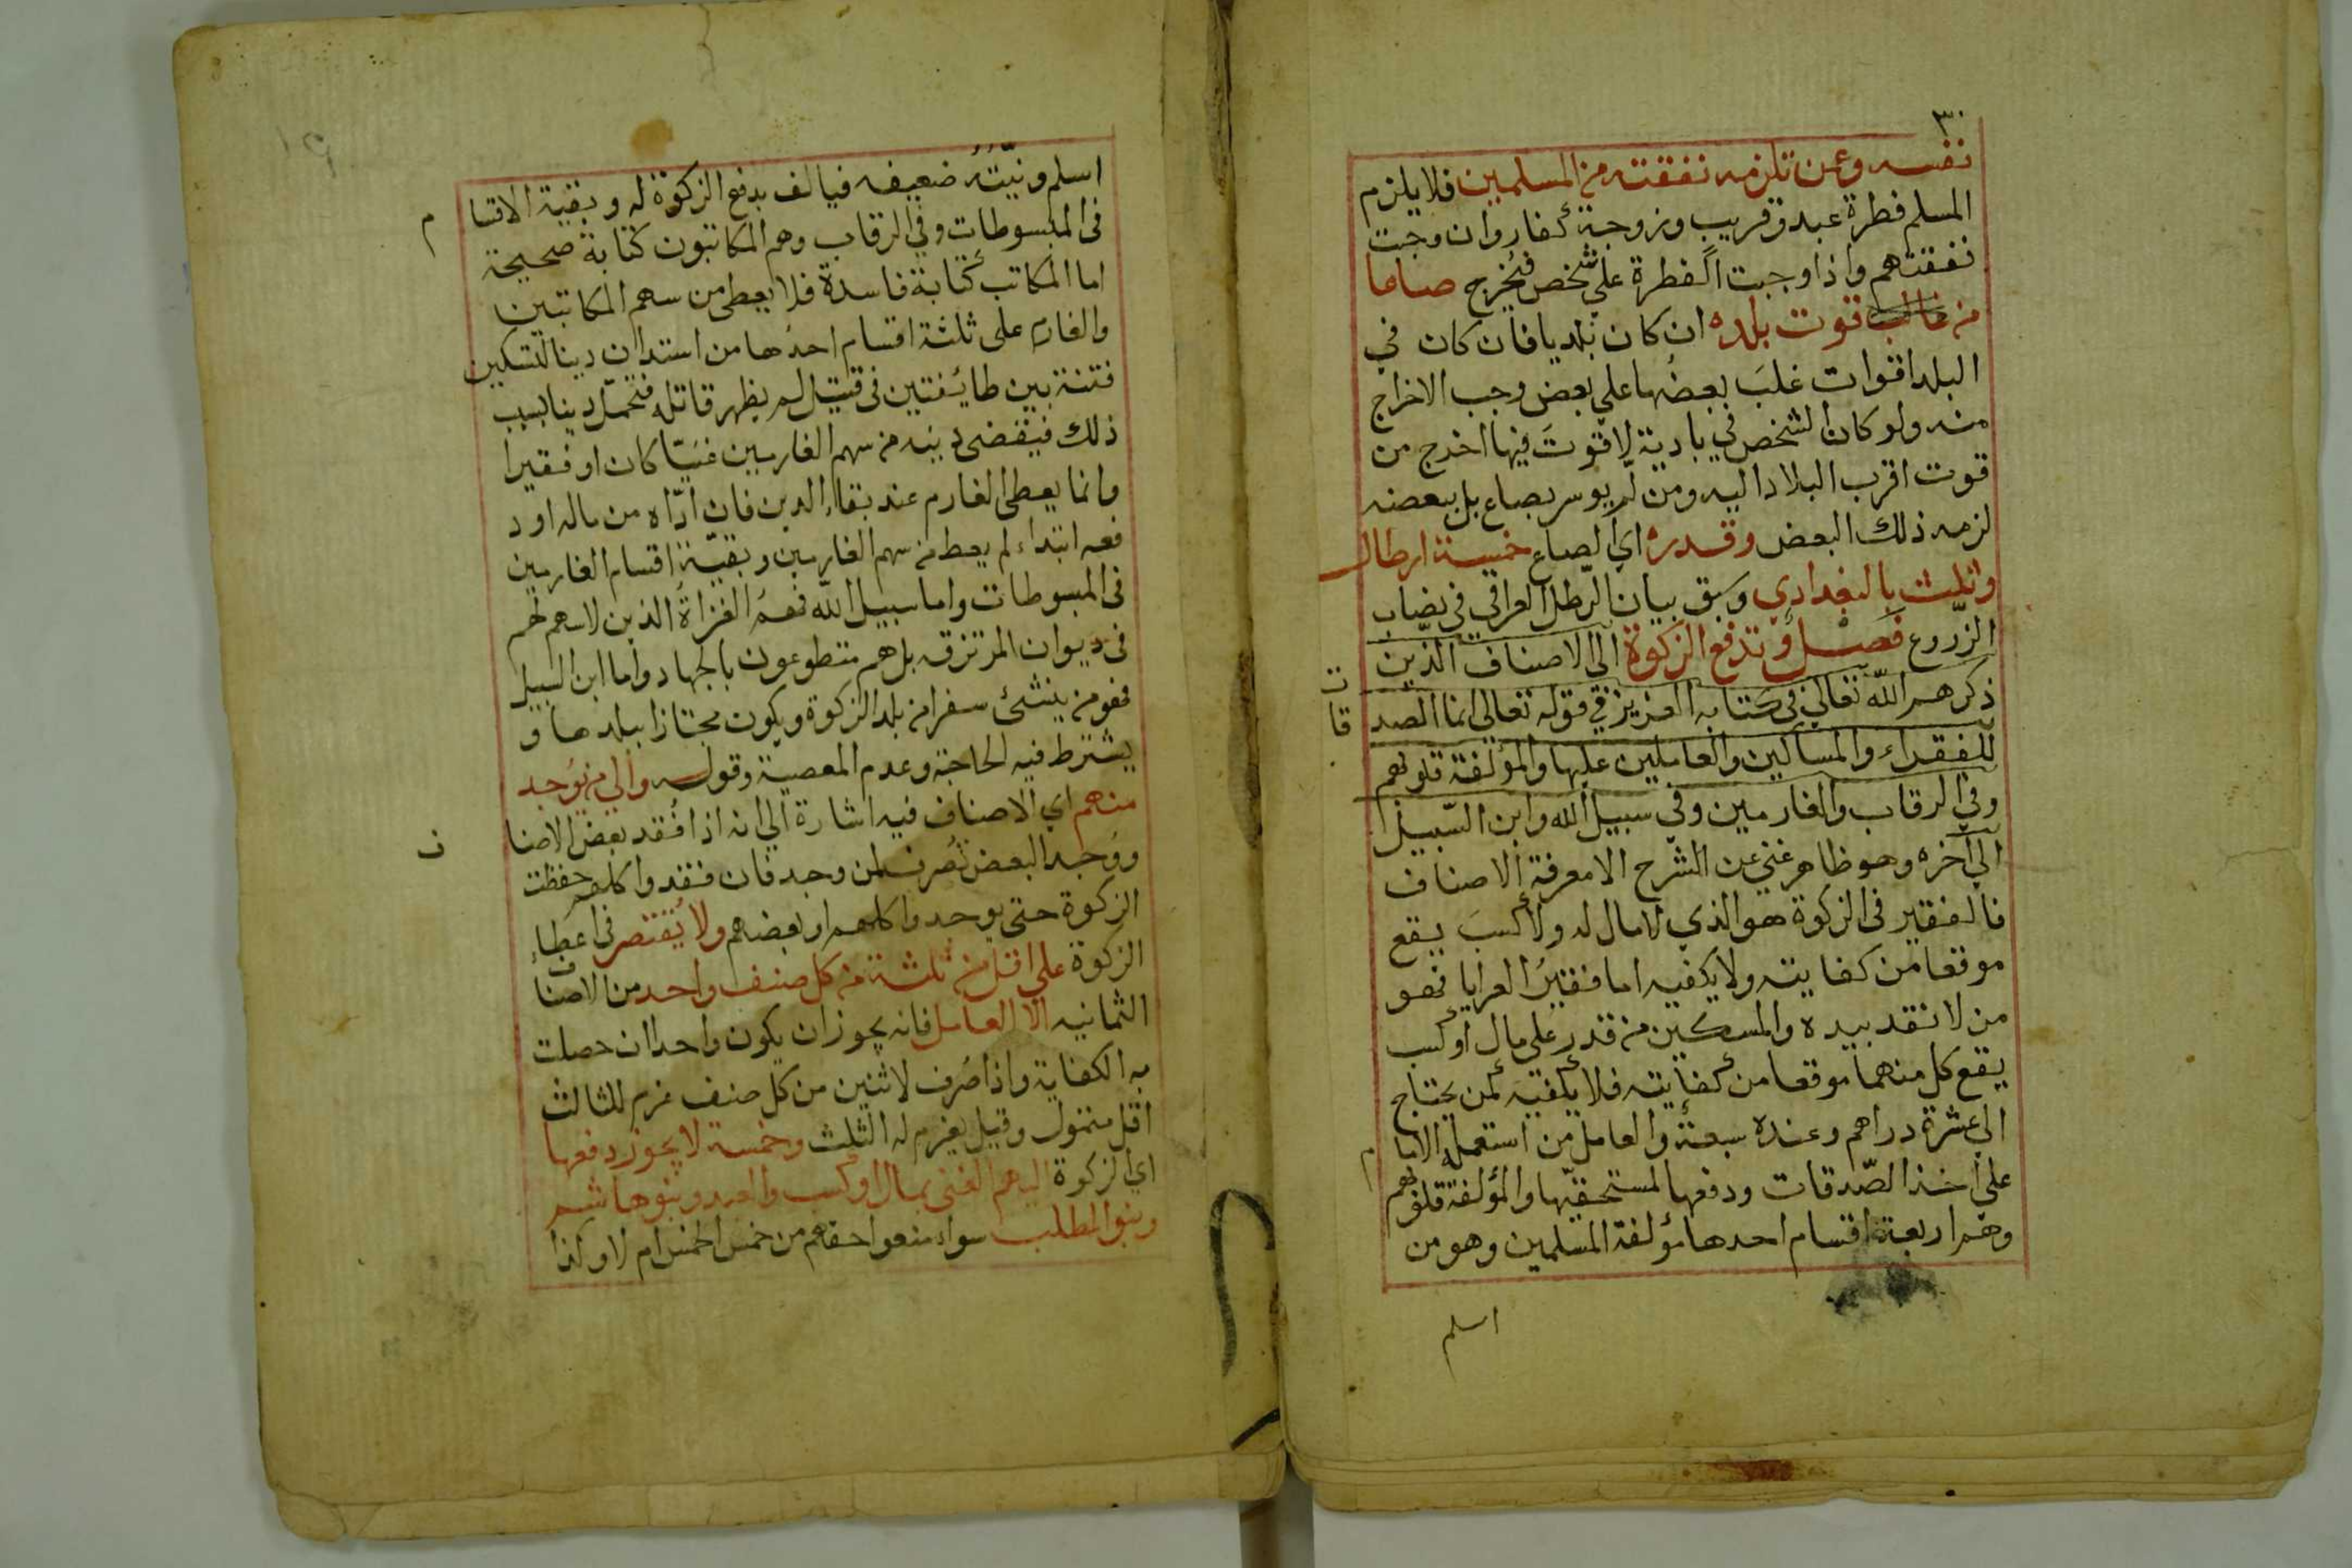 ٣٠
نفسه وعمن تلزمه نفقته من المسلمين فلا يلزم
المسلم فطرة عبد وقريب وزوجة كفار وان وجبت
نفقتهم واذا وجبت الفطرة على شخص فيخرج صاعا
من غالب قوت بلده ان كان بلديا فان كان في
البلد اقوات غلبَ بعضُها علي بعض وجب الاخراج
منه ولو كان الشخص في بادية لا قوتَ فيها اخرج من
قوت اقرب البلاد اليه ومن لم يوسر بصاع بل ببعضه
لزمه ذلك البعض وقدره اي الصاع خمسة ارطال
وثلث بالبغدادي وسبق بيان الرطل العراقي في نصاب
الزروع فصل وتدفع الزكوة الى الاصناف الذين
ذكرهم الله تعالي في كتابه العزيز في قوله تعالي انما الصد
قات
للفقراء والمساكين والعاملين عليها والمؤلفة قلوبهم
وفي الرقاب والغارمين وفي سبيل الله وابن السّبيل
الي آخره وهو ظاهر غني عن الشرح الا معرفة الاصناف
فالفقير في الزكوة هو الذي لا مال له ولا كسبَ يقع
موقعا من كفايته ولا يكفيه اما فقيرُ العرايا فهو
من لا نقد بيده والمسكين من قدر على مال او كسب
يقع كل منهما موقعا من كفايته فلا يكفيه كمن يحتاج
الي عشرة دراهم وعنده سبعة والعامل من استعمله الاما
م
على اخذ الصّدقات ودفعها لمستحقيّها والمؤلفة قلوبهم
وهم اربعة اقسام احدها مؤلفة المسلمين وهو من
اسلم
اسلم ونيّتُهُ ضعيفه فيالف بدفع الزكوة له وبقية الاقسا
م
في المبسوطات وفي الرقاب وهم المكاتبون كتابة صحيحة
اما المكاتب كتابة فاسدة فلا يعطى من سهم المكاتبين
والغارم على ثلثة اقسام احدُها من استدان دينا لتسكين
فتنة بين طائفتين في قتيل لم يظهر قاتله فتحمل دينا بسبب
ذلك فيقضى دينه من سهم الغارمين غنيّا كان او فقيرا
وانما يعطى الغارم عند بقاء الدين فان ادّاه من ماله او د
فعه ابتداء لم يعط من سهم الغارمين وبقيّة اقسام الغارمين
في المبسوطات واما سبيل الله فهمُ الغزاةُ الذين لا سهم لهم
في ديوان المرتزقه بل هم متطوعون بالجهاد واما ابن السبيل
فهو من ينشئ سفرا من بلد الزكوة ويكون مجتازا ببلدها و
يشترط فيه الحاجة وعدم المعصية وقوله والي من يوُجد
منهم اي الاصناف فيه اشارة الي انه اذا فُقد بعض الاصنا
ف
ووُجد البعض تُصرف لمن وجد فان فقدوا كلهم حفظت
الزكوة حتى يوجدوا كلهم او بعضهم ولا يُقتصر في اعطاء
الزكوة على اقل من ثلثة من كل صنف واحد من الاصناف
الثمانيه الا العامل فانه يجوز ان يكون واحدا ان حصلت
به الكفاية واذا صُرف لاثنين من كل صنف غرم للثالث
اقل متمول وقيل يغرم له الثلث وخمسة لا يجوز دفعها
اي الزكوة اليهم الغني بمال او كسب والعبد وبنو هاشم
وبنو المطلب سواء منعوا حقهم من خمس الخمس ام لا وكذا